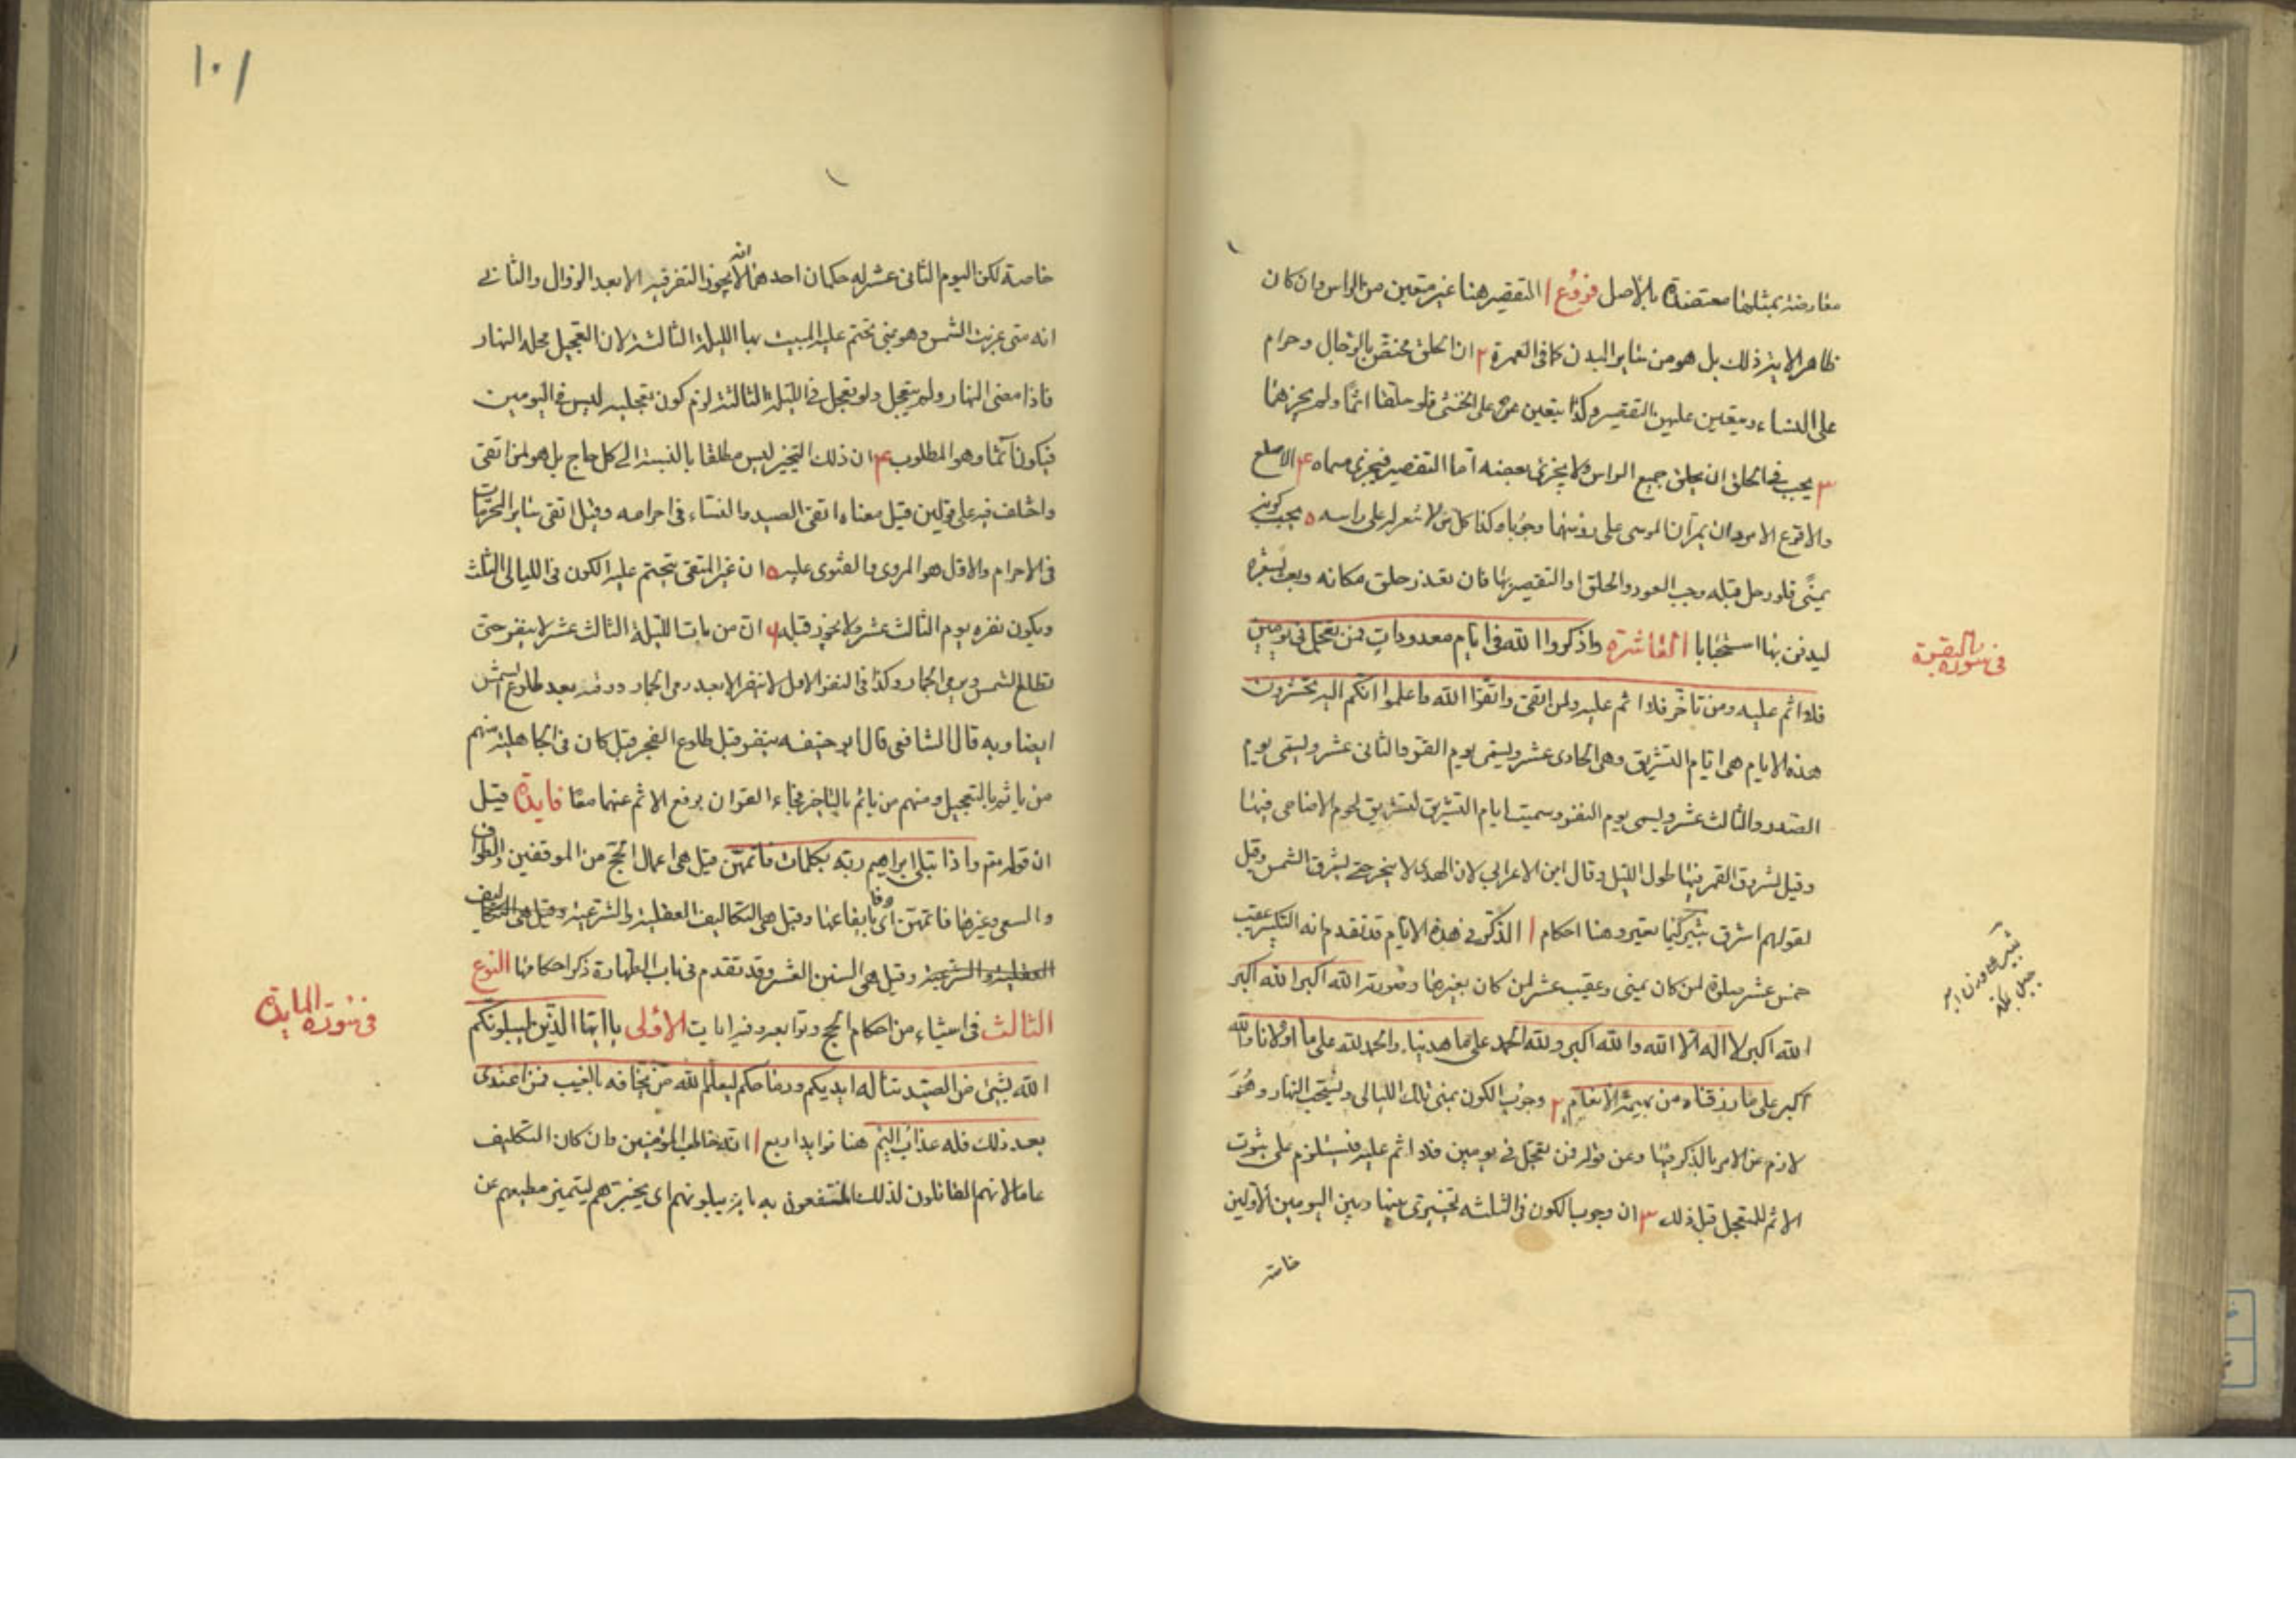 معارضة بمثلها معتضدة بالاصل فروع ا التقصير هنا غير متعين من الراس وان كان
ظاهر الاية ذلك بل هو من ساير البدن كما فى العمرة ٢ ان الحلق مختص بالرجال وحرام
على النساء ويتعين عليهن التقصير وكذا يتعين على الخنثى فلو حلقتا اثمتا ولم يجزهما
٣ يجب فى الحلق ان يحلق جميع الراس ولا يجزى بعضه اما التقصير فيجزى مسماه ۴ الاصلع
والاقرع الامردان يمرّان الموسى على رؤسهما وجوبا وكذا كل من لا شعر له على راسه ۵ يجب كونه
بمنًى فلو رحل قبله وجب العود والحلق او التقصير بها فان تعذر حلق مكانه وبعث بشعره
ليدفن بها استحبابا العاشرة واذكروا الله فى ايام معدودات فمن تعجل فى يومين
فلا اثم عليه ومن تاخر فلا اثم عليه لمن اتقى واتقوا الله واعلموا انكم اليه تحشرون
هذه الايام هى ايام التشريق وهى الحادى عشر ويسمى يوم القر والثانى عشر ويسمى يوم
الصدر والثالث عشر ويسمى يوم النفر وسميت ايام التشريق لتشريق لحوم الاضاحى فيها
وقيل لشروق القمر فيها طول الليل وقال ابن الاعرابي لان الهدى لا ينحر حتى تشرق الشمس وقيل
لقولهم اشرق ثبير كيما نغير وهنا احكام ا الذكر فى هذه الايام قد تقدم انه التكبير عقيب
خمس عشر صلوة لمن كان بمنى وعقيب عشر لمن كان بغيرها وصورته الله اكبر الله اكبر
الله اكبر لا اله الا الله والله اكبر ولله الحمد على ما هدينا والحمد لله على ما اولانا والله
اكبر على ما رزقناه من بهيمة الانعام ٢ وجوب الكون بمنى تلك الليالى ويستحب النهار وهو
لازم من الامر بالذكر فيها ومن قوله فمن تعجل فى يومين فلا اثم عليه فيستلزم على ثبوت
الاثم للمتعجل قبل ذلك ٣ ان وجوب الكون فى الثلثه تخييرى بينها وبين اليومين الاولين
خاصة
فى سورة البقرة
ثبير
جبل بمكة
١٠١
خاصة لكن اليوم الثانى عشر له حكمان احدهما انه لا يجوز النفر فيه الا بعد الزوال والثانى
انه متى غربت الشمس وهو بمنى تحتم عليه المبيت بها الليلة الثالثة لان التعجيل محله النهار
فاذا مضى النهار ولم يتعجل ولو تعجل فى الليلة الثالثة لزم كون تعجليه ليس فى اليومين
فيكون آثما وهو المطلوب ۴ ان ذلك التخيير ليس مطلقا بالنسبة الى كل حاج بل هو لمن اتقى
واختلف فيه على قولين قيل معناه اتقى الصيد والنساء فى احرامه وقيل اتقى ساير المحرمات
فى الاحرام والاول هو المروى والفتوى عليه ۵ ان غير المتقى يتحتم عليه الكون فى الليالى الثلث
ويكون نفره يوم الثالث عشر ولا يجوز قبله ۶ ان من بات الليلة الثالث عشر لا ينفر حتى
تطلع الشمس ويرمى الجمار وكذا فى النفر الاول لا ينفر الا بعد رمى الجمار ووقته بعد طلوع الشمس
ايضا وبه قال الشافعى قال ابو حنيفه ينفر قبل طلوع الفجر قيل كان فى الجاهلية منهم
من ياثم بالتعجيل ومنهم من ياثم بالتاخر فجاء القران برفع الاثم عنهما معًا فايدة قيل
ان قوله تع واذا ابتلى ابراهيم ربه بكلمات فاتمهن قيل هى اعمال الحج من الموقفين والطواف
والسعى وغيرها فاتمهن اى وفا بايقاعها وقيل هى التكاليف العقلية والشرعية وقيل هى التكاليف
العقلية والشرعية وقيل هى السنن العشر وقد تقدم فى باب الطهارة ذكر احكامها النوع
الثالث فى اشياء من احكام الحج وتوابعه وفيه ايات الاولى يا ايها الذين ليبلونكم
الله بشئ من الصيد تناله ايديكم ورماحكم ليعلم الله من يخافه بالغيب فمن اعتدى
بعد ذلك فله عذاب اليم هنا فوايد اربع ا انه خاطب المؤمنين وان كان التكليف
عاما لانهم القائلون لذلك المنتفعون به بانه يبلونهم اى يختبرهم ليتميز مطيعهم عن
فى سورة المايدة